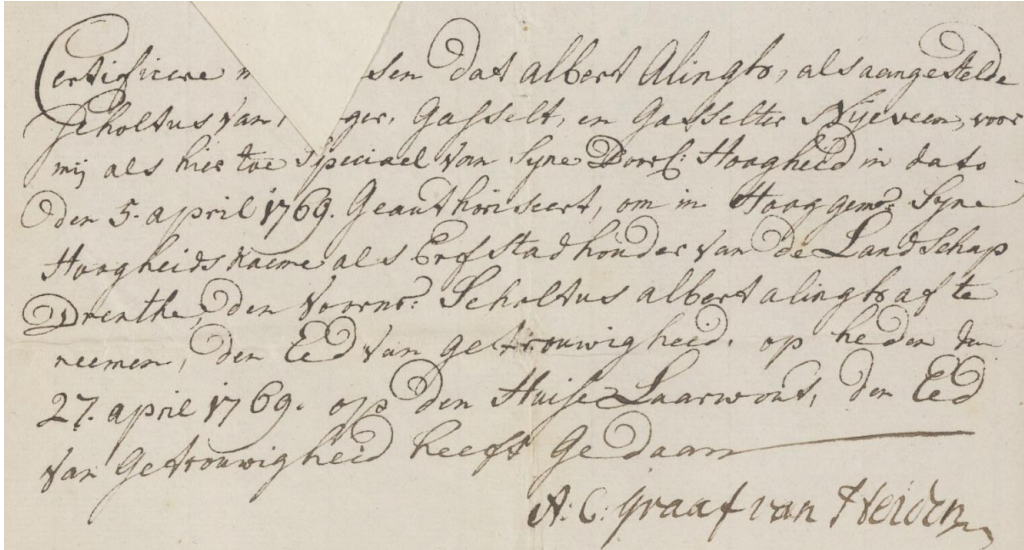 Certificere m sen dat albert Alingh, als aangestelde
Scholtus van ger, Gasselt, en Gasselter Nijeveen, voor
mij als hier toe speciael van Syne Doorl: Hoogheid in dato
den 5. april 1769. Geauthoriseert, om in Hoog gem: Syne
Hoogheids naeme als Erfstadhouder van de Landschap
Drenthe, den voorn: Scholtus albert alingh af te
neemen, den Eed van getrouwigheid. op heden den
27. april 1769. op den Huise Laarwout, den Eed
van getrouwigheid heeft gedaan
A: C: Graaf van Heiden